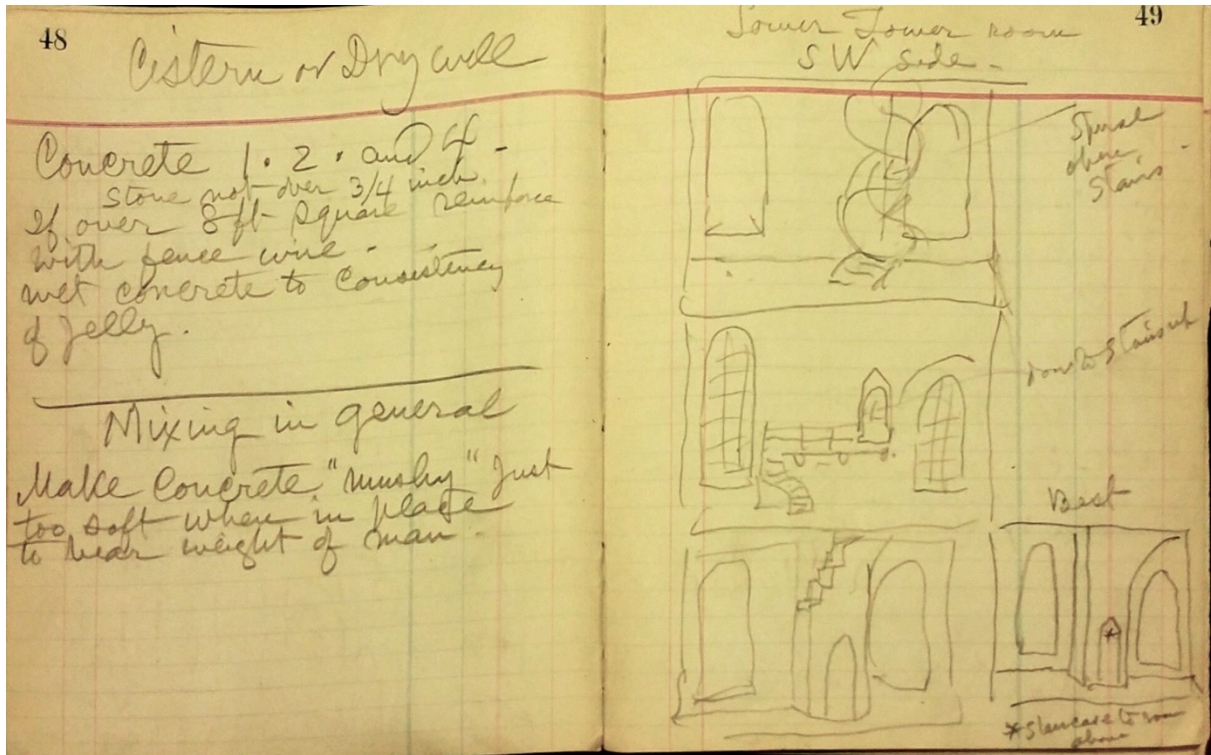 48
Cistern or Dry well
Concrete 1 . 2 . and 4 -
Stone not over 3/4 inch.
If over 8 ft square reinforce
with fence wire -
wet concrete to consistency
of Jelly.
Mixing in general
Make Concrete "mushy" Just
too soft when in place
to bear weight of man.
49
Lower Tower room
SW Side -
Spiral
open
Stairs -
Door to Stairs
Best
* Staircase to room
above